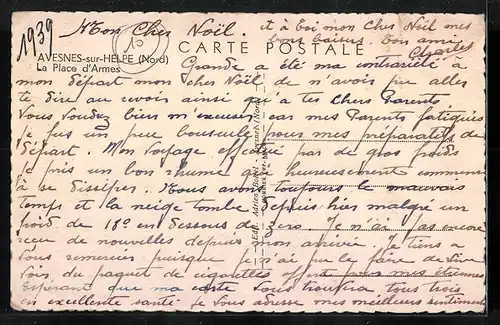 1939
Mon Cher Noël.
et à toi mon Cher Noël mes
bons baisers. Ton ami
Charles
CARTE POSTALE
AVESNES-sur-HELPE (Nord)
La Place d'Armes
Grande a été ma contrariété à
mon départ mon cher Noël de n'avoir pu aller
te dire au revoir ainsi qu'à tes Chers Parents
Vous voudrez bien m'excuser car mes Parents fatigués
je fus un peu bousculé pour mes préparatifs de
départ. Mon voyage effectué par de gros froids
je pris un bon rhume qui heureusement commence
à se dissiper. Nous avons toujours le mauvais
temps et la neige tombe depuis hier malgré un
froid de 18° en dessous de zéro. Je n'ai pas encore
reçu de nouvelles depuis mon arrivée. Je tiens à
vous remercier puisque je n'ai pu le faire de vive
voix, du paquet de cigarettes offert pour mes étrennes
Espérant que ma carte vous trouvera tous trois
en excellente santé je vous adresse mes meilleurs sentiments